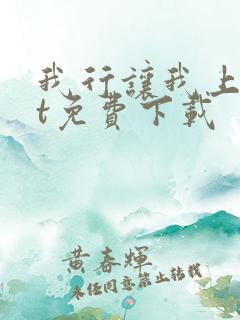 我行讓我上
t免費下載
黃春輝
未任同意禁止轉載